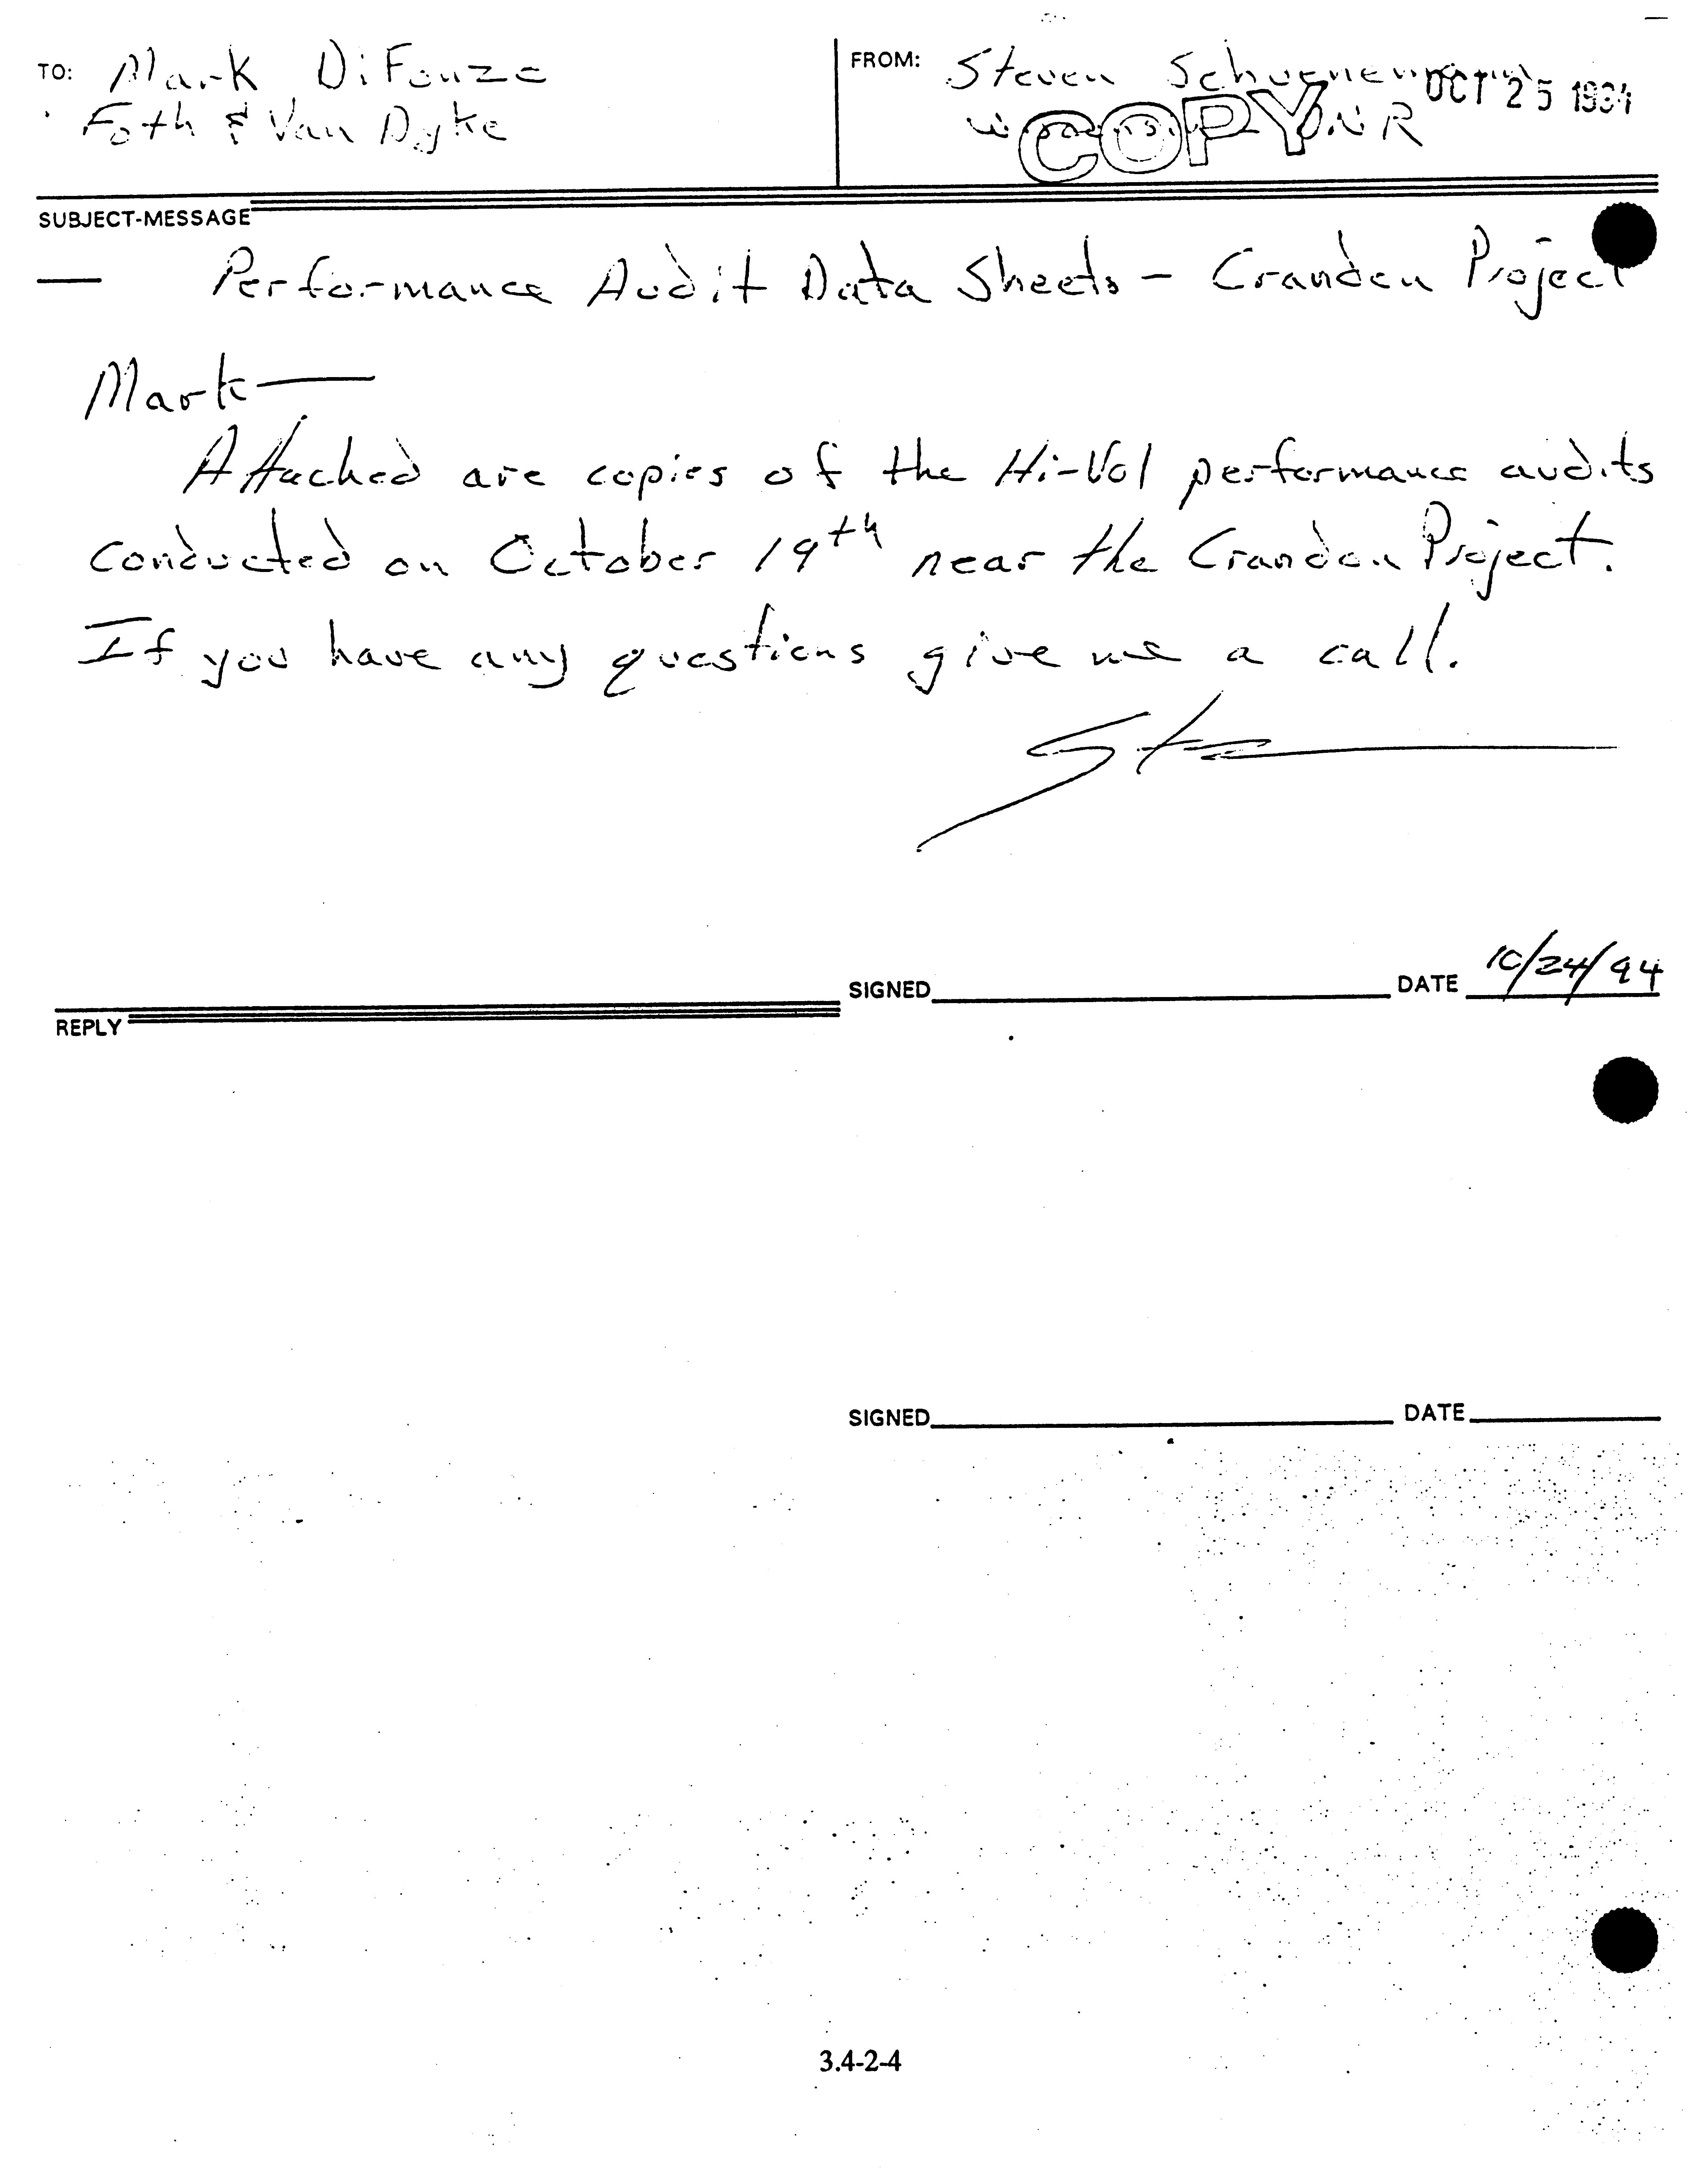 TO: Mark DiFonzo
Foth & Van Dyke
FROM: Steven Schoenemann
Wisconsin DNR
COPY
OCT 25 1994
SUBJECT-MESSAGE
— Performance Audit Data Sheets - Crandon Project
Mark—
Attached are copies of the Hi-Vol performance audits
conducted on October 19th near the Crandon Project.
If you have any questions give me a call.
Steve
SIGNED DATE 10/24/94
REPLY
SIGNED DATE
3.4-2-4